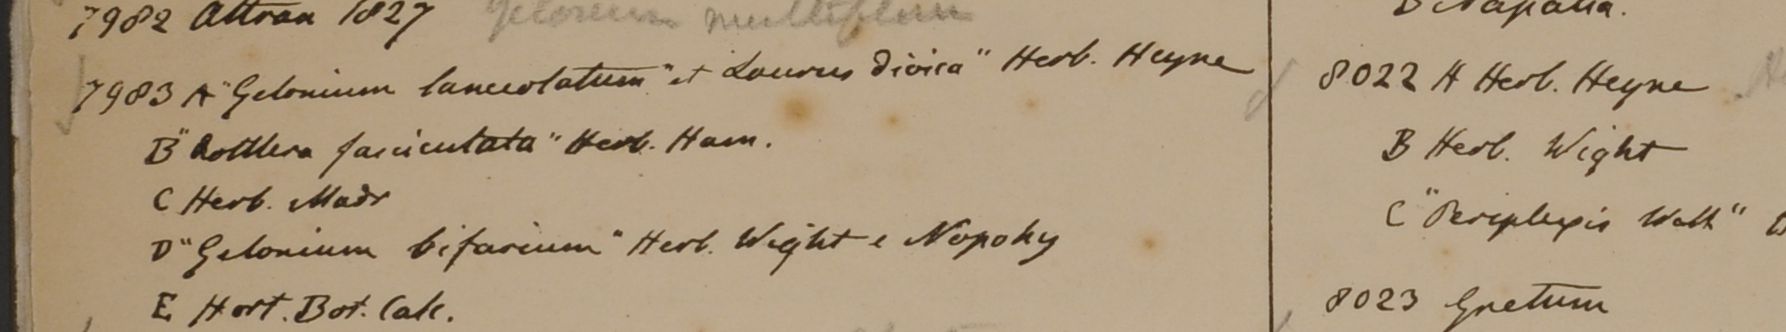 7982 Attran 1827 Gelonium multiflorum
7983 A "Gelonium lanceolatum" et Laurus dioica" Herb. Heyne
B "Rottlera fasciculata" Herb. Ham.
C Herb. Madr
D "Gelonium bifarium" Herb. Wight e Nopoky
E Hort. Bot. Calc.
B Napalia.
8022 A Herb. Heyne
B Herb. Wight
C "Periplexis Wall"
8023 Gnetum